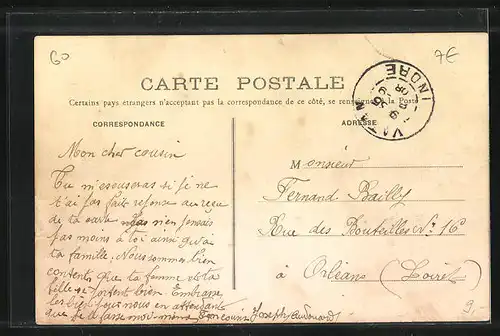 60
7€
CARTE POSTALE
Certains pays étrangers n'acceptant pas la correspondance de ce côté, se renseigner à la Poste
CORRESPONDANCE
ADRESSE
VATAN
INDRE
Mon cher cousin
Tu m'escuseras si je ne
t'ai pas fait reponse au reçu
de ta carte mais n'en pensais
pas moins à toi ainsi qu'a
ta famille. Nous sommes bien
contents que la femme et la
fille se portent bien Embrasse
les bien pour nous en attendant
que je le fasse moi-même Ton cousin Joseph
Monsieur
Fernand Bailly
Rue des Bouteilles No 16
à Orléans (Loiret)